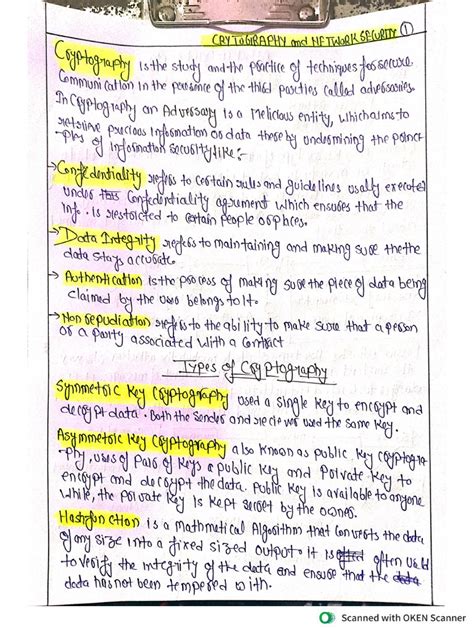 CRYTOGRAPHY and NETWORK SECURITY 1
Cryptography is the study and the practice of techniques for secure
Communication in the persence of the third parties called adversaries.
In Cryptography an Adversary is a Melicious entity, which aims to
retreive precious Information or data thereby undermining the princi-
ples of Information security like:-
→ Confedentiality refers to certain rules and guidelines usally executed
under this Confedentiality agrument which ensures that the
Info. is restricted to certain people or places.
→ Data Integrity refers to maintaining and making sure the the
data stays accurate.
→ Authentication is the process of making sure the piece of data being
claimed by the user belongs to it.
→ Non repudiation refers to the ability to make sure that a person
or a party associated with a contract
Types of Cryptography
Symmetric Key Cryptography used a single key to encrypt and
decrypt data. Both the Sender and reciever used the same key.
Asymmetric Key Cryptography also known as public key cryptogra-
phy, uses of Pair of keys a public key and Private key to
encrypt and decrypt the data. Public key is available to anyone
while, the private key is kept secret by the owner.
Hashfunction is a Mathmatical Algorithm that converts the data
of any size into a fixed sized output. it is often used
to verify the integrity of the data and ensure that the
data has not been tempered with.
Scanned with OKEN Scanner